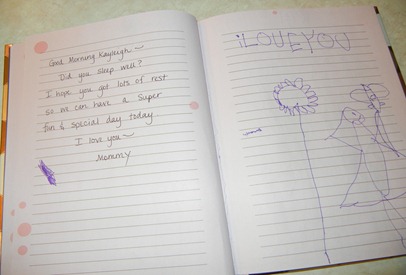 Good Morning Kayleigh~
Did you sleep well?
I hope you get lots of rest
so we can have a super
fun & special day today.
I love you~
Mommy
iLOUEYOU